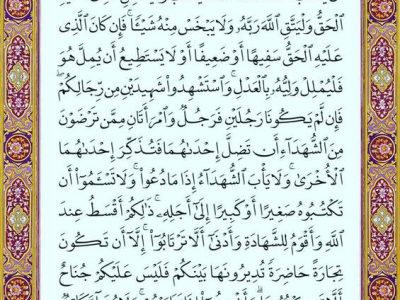 ٱلْحَقُّ وَلْيَتَّقِ ٱللَّهَ رَبَّهُۥ وَلَا يَبْخَسْ مِنْهُ شَيْـًٔا ۚ فَإِن كَانَ ٱلَّذِى
عَلَيْهِ ٱلْحَقُّ سَفِيهًا أَوْ ضَعِيفًا أَوْ لَا يَسْتَطِيعُ أَن يُمِلَّ هُوَ
فَلْيُمْلِلْ وَلِيُّهُۥ بِٱلْعَدْلِ ۚ وَٱسْتَشْهِدُوا۟ شَهِيدَيْنِ مِن رِّجَالِكُمْ ۖ
فَإِن لَّمْ يَكُونَا رَجُلَيْنِ فَرَجُلٌ وَٱمْرَأَتَانِ مِمَّن تَرْضَوْنَ
مِنَ ٱلشُّهَدَآءِ أَن تَضِلَّ إِحْدَىٰهُمَا فَتُذَكِّرَ إِحْدَىٰهُمَا
ٱلْأُخْرَىٰ ۚ وَلَا يَأْبَ ٱلشُّهَدَآءُ إِذَا مَا دُعُوا۟ ۚ وَلَا تَسْـَٔمُوٓا۟ أَن
تَكْتُبُوهُ صَغِيرًا أَوْ كَبِيرًا إِلَىٰٓ أَجَلِهِۦ ۚ ذَٰلِكُمْ أَقْسَطُ عِندَ
ٱللَّهِ وَأَقْوَمُ لِلشَّهَٰدَةِ وَأَدْنَىٰٓ أَلَّا تَرْتَابُوٓا۟ ۖ إِلَّآ أَن تَكُونَ
تِجَٰرَةً حَاضِرَةً تُدِيرُونَهَا بَيْنَكُمْ فَلَيْسَ عَلَيْكُمْ جُنَاحٌ